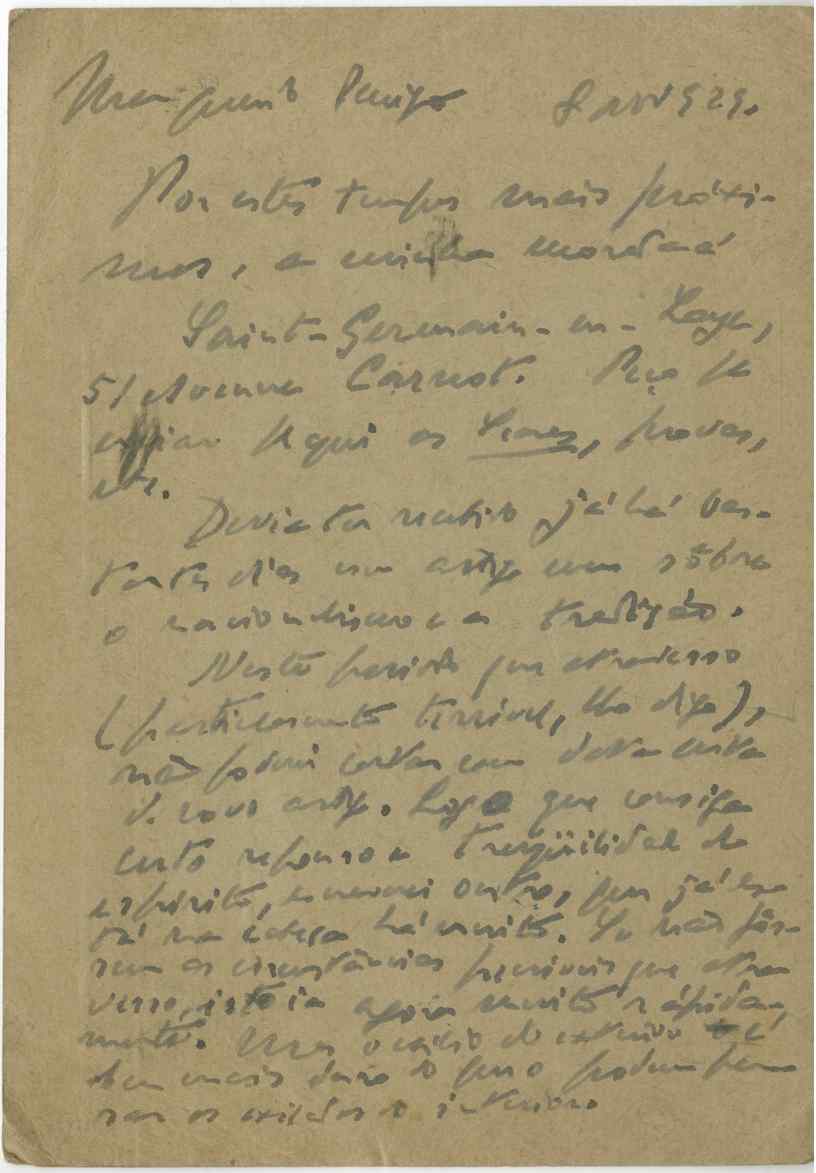 Meu querido Amigo 8 nov 929.
Por estes tempos mais próxi-
mos, a minha morada é
Saint-Germain-en-Laye,
51 Avenue Carnot. Peço p.ª
enviar p.ª aqui os Searas, provas,
etc.
Devia ter recebido já há bas-
tantes dias um artigo meu sôbre
o nacionalismo e a tradição.
Neste período que atravesso
(particularmente terrível, lho digo),
não poderei contar com data certa
d. novo artigo. Logo que consiga
certo repouso e tranqüilidade de
espírito, escreverei outro, que já es-
tá na cabeça há muito. Se não fôs-
sem as circunstâncias que atra-
vesso, isto ia agora muito rápida-
mente. Mas o exílio do exterior é
bem mais duro do que o podem pen-
sar os exilados do interior.